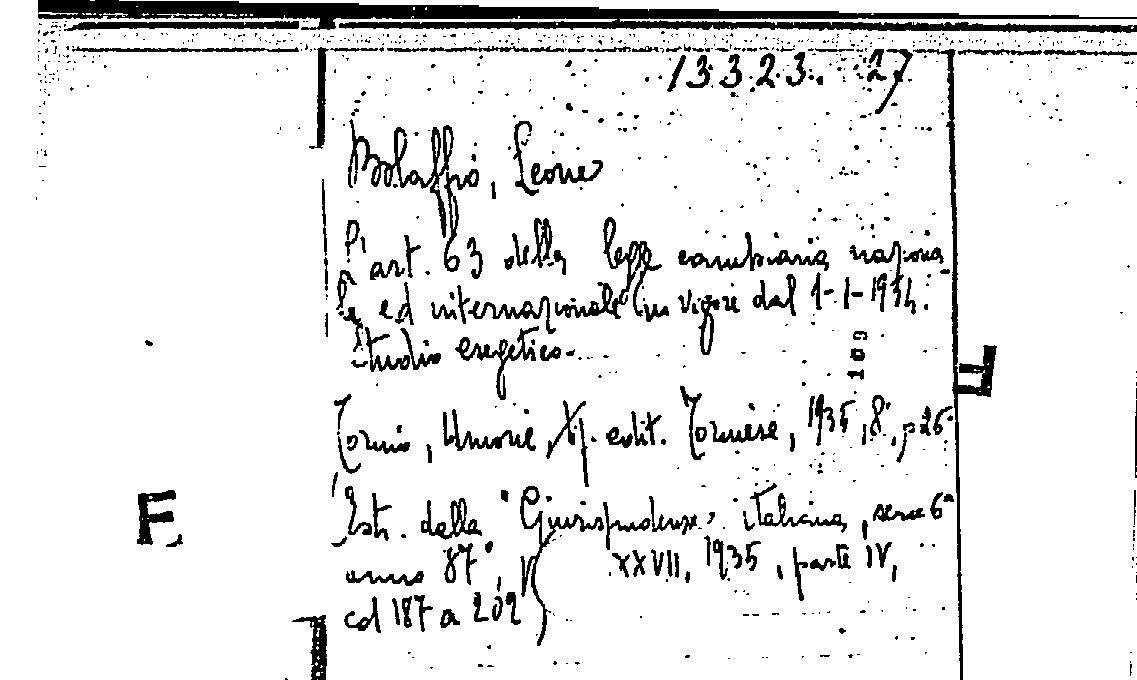 13323. 27
Bolaffio, Leone
L'art. 63 della legge cambiaria naziona
le ed internazionale (in vigore dal 1-1-1934.
Studio esegetico.
109
Torino, Unione Tip. edit. Torinese, 1935, 8°, p 26
(Estr. dalla "Giurisprudenza italiana, serie 6ª
anno 87°, V XXVII, 1935, parte IV,
col 187 a 202)
E
E